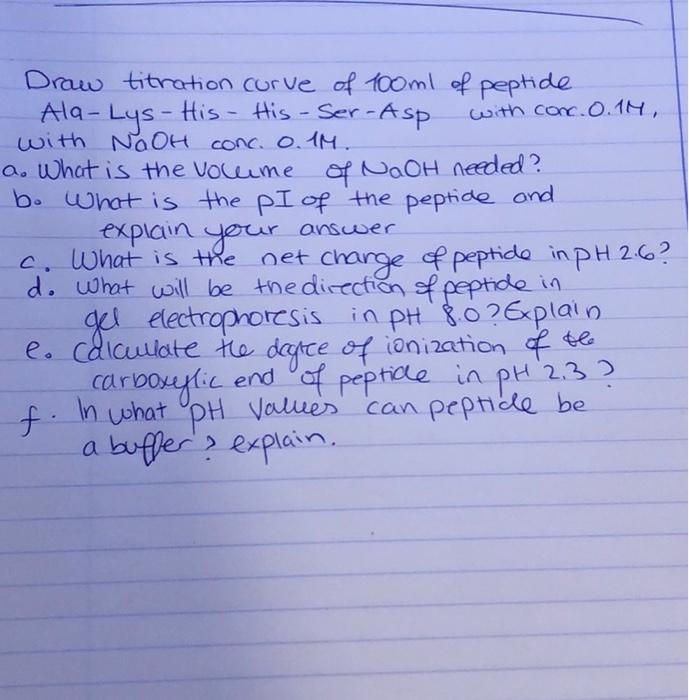 Draw titration curve of 100ml of peptide
Ala-Lys-His-His-Ser-Asp with conc. 0.1M,
with NaOH conc. 0.1M.
a. What is the Volume of NaOH needed?
b. What is the pI of the peptide and
explain your answer
c. What is the net charge of peptide in pH 2.6?
d. What will be the direction of peptide in
gel electrophoresis in pH 8.0? Explain
e. calculate the degree of ionization of the
carboxylic end of peptide in pH 2.3?
f. In what pH Values can peptide be
a buffer? explain.